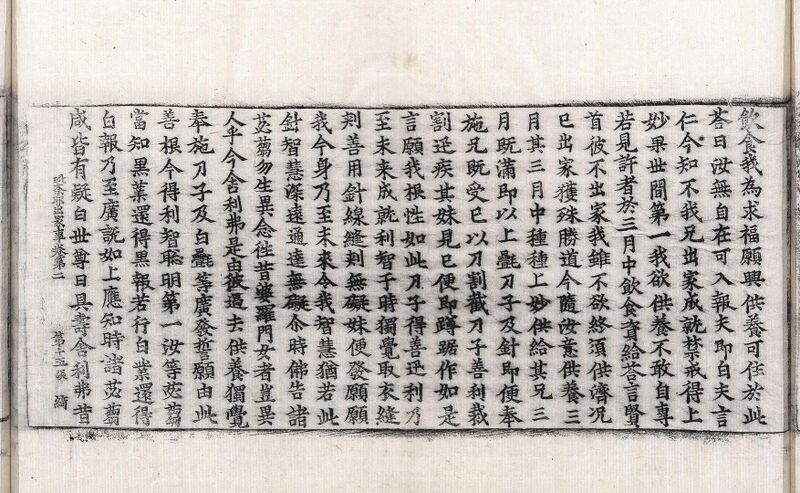 飲食我為求福願興供養可住於此
荅曰汝無自在可入報夫即白夫言
仁今知不我兄出家成就禁戒得上
妙果世間第一我欲供養不敢自專
若見許者於三月中飲食資給荅言賢
首彼不出家我雖不欲終須供濟況
已出家獲殊勝道今隨汝意供養三
月其三月中種種上妙供給其兄三
月既滿即以上㲲刀子及針即便奉
施兄既受已以刀割截刀子善利裁
割迅疾其妹見已便即蹲踞作如是
言願我根性如此刀子得善迅利乃
至未來成就利智于時獨覺取衣縫
刾善用針線縫刾無礙妹便發願願
我今身乃至未來令我智慧猶若此
針智慧深遠通達無礙尒時佛告諸
苾蒭勿生異念往昔婆羅門女者豈異
人乎今舍利弗是由彼過去供養獨覺
奉施刀子及白㲲等廣發誓願由此
善根今得利智聡明第一汝等苾蒭
當知黒業還得黒報若行白業還得
白報乃至廣說如上應知時諸苾蒭
咸皆有疑白世尊曰具壽舍利弗昔
出家事卷第二 第十五張